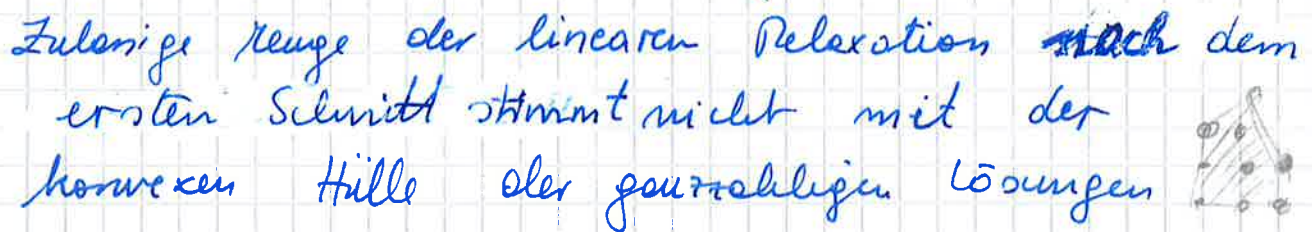 Zulässige Menge der linearen Relaxation nach dem
ersten Schnitt stimmt nicht mit der
konvexen Hülle der ganzzahligen Lösungen